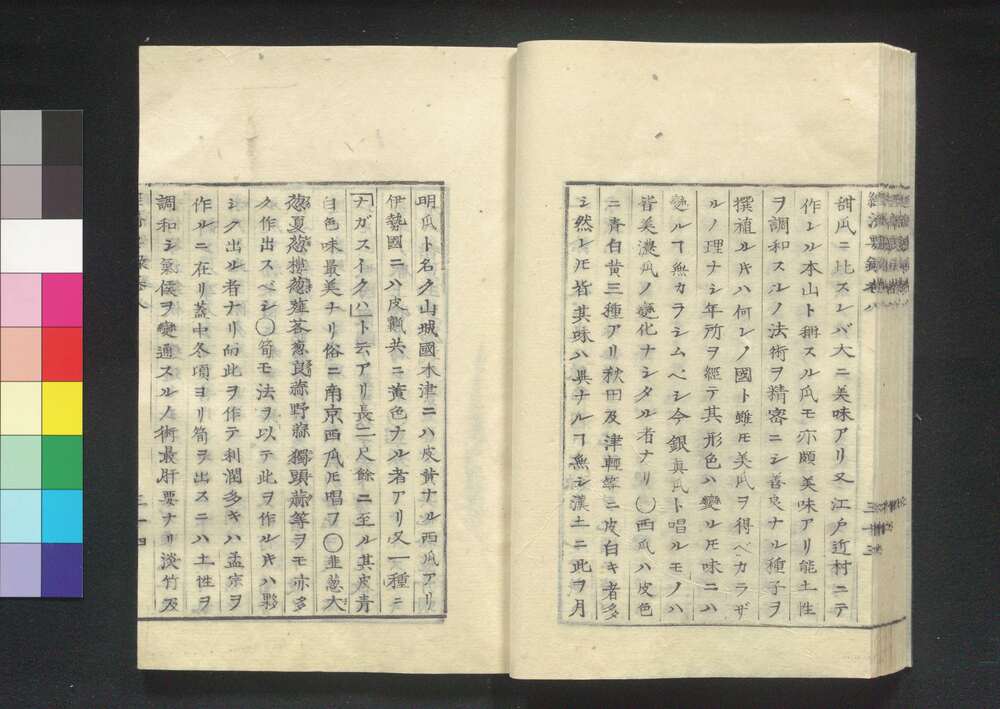 甜瓜ニ比スレバ大ニ美味アリ又江戸近村ニテ
作レル本山ト稱スル瓜モ亦頗美味アリ能土性
ヲ調和スルノ法術ヲ精密ニシ善良ナル種子ヲ
撰植ルキハ何レノ國ト雖モ美瓜ヲ得ベカラザ
ルノ理ナシ年所ヲ經テ其形色ハ變ルモ味ニハ
變ルヿ無カラシムベシ今銀眞瓜ト唱ルモノハ
皆美濃瓜ノ變化ナシタル者ナリ〇西瓜ハ皮色
ニ青白黄三種アリ秋田及津輕等ニ皮白キ者多
シ然レモ皆其味ハ異ナルヿ無シ漢土ニ此ヲ月
明瓜ト名ク山城國木津ニハ皮黄ナル西瓜アリ
伊勢國ニハ皮瓤共ニ黄色ナル者アリ又一種ニ
「ナガスイクハ」ト云アリ長二尺餘ニ至ル其皮青
白色味最美ナリ俗ニ南京西瓜モ唱フ〇韭葱大
葱夏葱樓葱薤茖葱良蒜野蒜獨頭蒜等ヲモ亦多
ク作出スベシ〇筍モ法ヲ以テ此ヲ作ルキハ夥
シク出ル者ナリ而此ヲ作テ利潤多キハ孟宗ヲ
作ルニ在リ蓋中冬頃ヨリ筍ヲ出スニハ土性ヲ
調和シ氣候ヲ變通スルノ術最肝要ナリ淡竹及